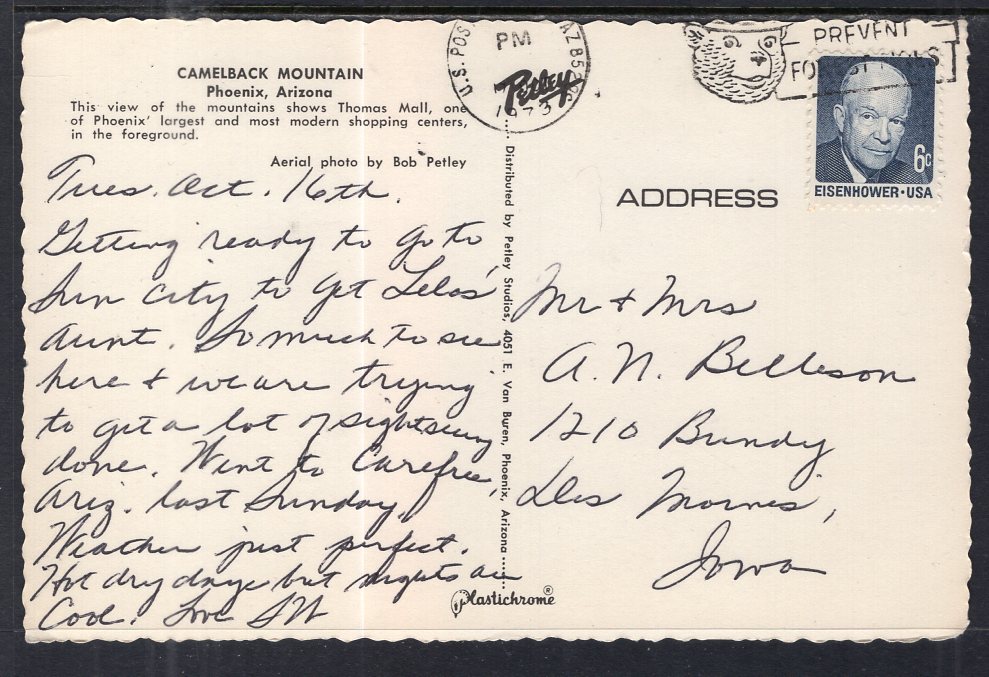 CAMELBACK MOUNTAIN
Phoenix, Arizona
This view of the mountains shows Thomas Mall, one
of Phoenix' largest and most modern shopping centers,
in the foreground.
Aerial photo by Bob Petley
Tues. Oct. 16th.
Getting ready to go to
Sun City to get Lelas'
Aunt. So much to see
here & we are trying
to get a lot of sightseeing
done. Went to Carefree,
Ariz. last Sunday.
Weather just perfect.
Hot dry days but nights are
Cool. Love
U.S. POS
PM
AZ 852
1973
Petley
Distributed by Petley Studios, 4051 E. Van Buren, Phoenix, Arizona
Plastichrome®
PREVENT
FOREST FIRES
6c
EISENHOWER·USA
ADDRESS
Mr & Mrs
A. N. Billeson
1210 Bundy
Des Moines,
Iowa